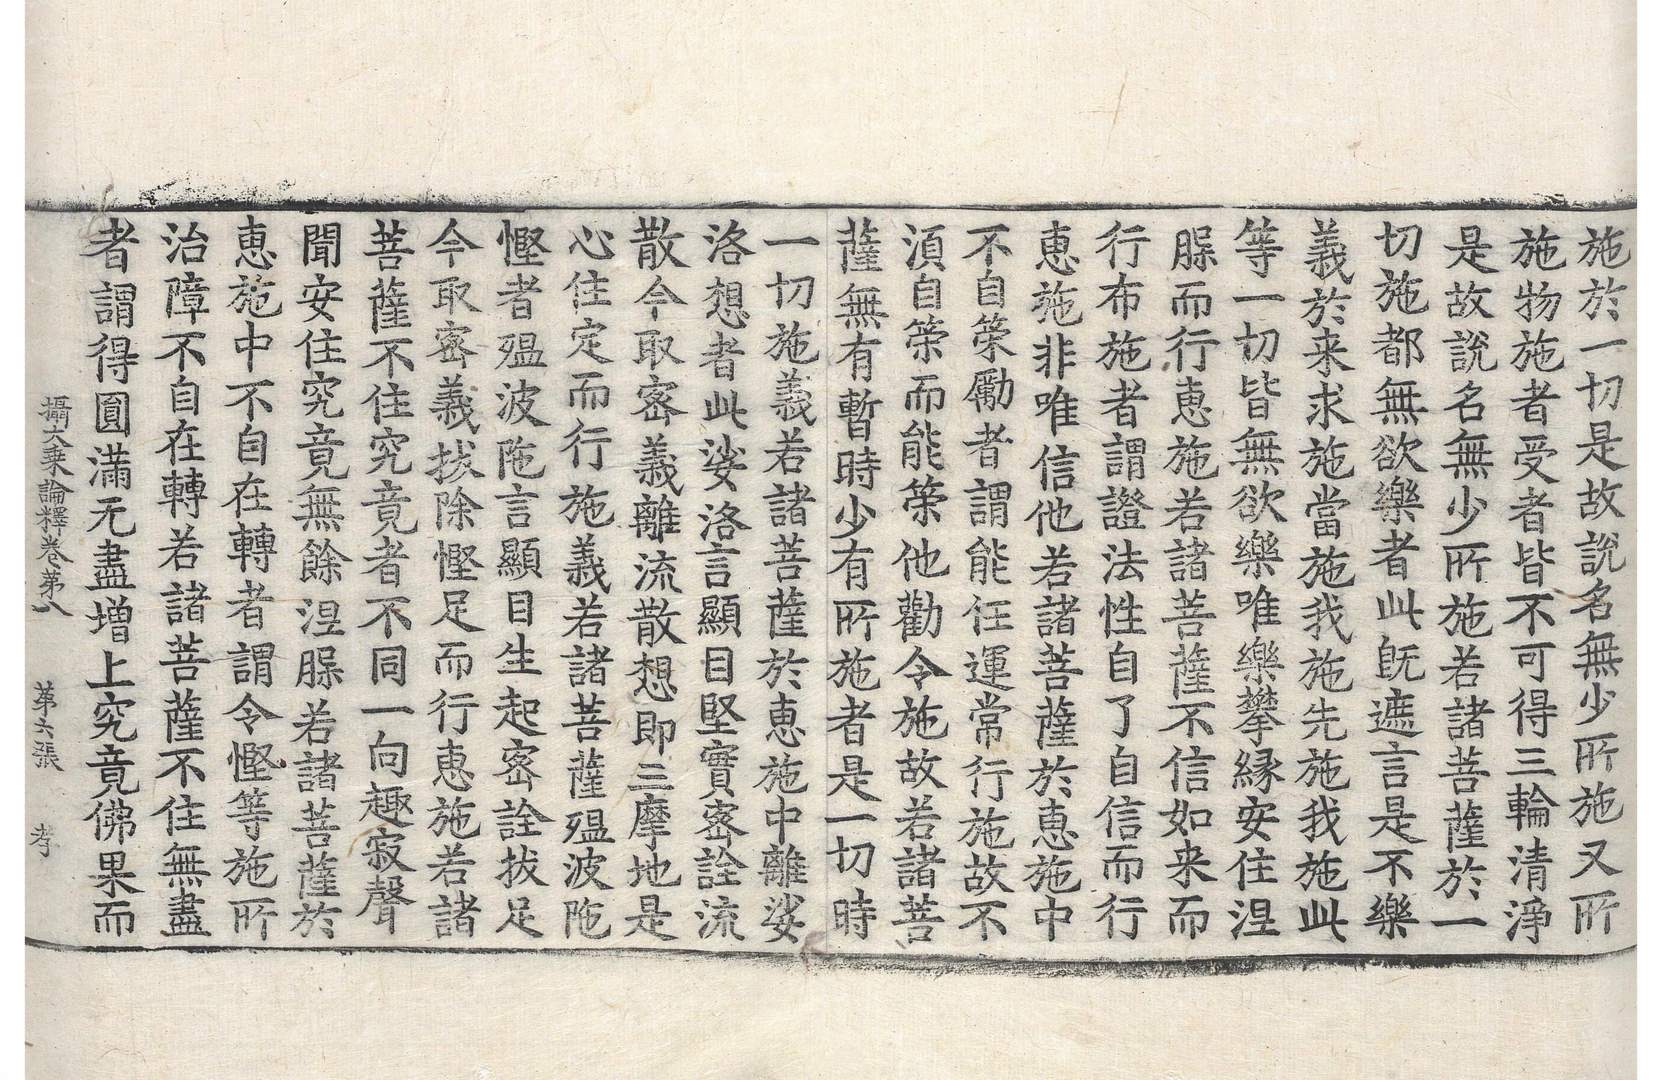 施於一切是故說名無少所施又所
施物施者受者皆不可得三輪清淨
是故說名無少所施若諸菩薩於一
切施都無欲樂者此旣遮言是不樂
義於来求施當施我施先施我施此
等一切皆無欲樂唯樂攀緣安住涅
腺而行恵施若諸菩薩不信如来而
行布施者謂證法性自了自信而行
恵施非唯信他若諸菩薩於恵施中
不自策勵者謂能任運常行施故不
湏自策而能策他勸令施故若諸菩
薩無有暫時少有所施者是一切時
一切施義若諸菩薩於恵施中離娑
洛想者此娑洛言顯目堅實密詮流
散今取密義離流散想即三摩地是
心住定而行施義若諸菩薩殟波陁
慳者殟波陁言顯目生起密詮拔足
今取密義拔除慳足而行恵施若諸
菩薩不住究竟者不同一向趣寂聲
聞安住究竟無餘涅腺若諸菩薩於
恵施中不自在轉者謂令慳等施所
治障不自在轉若諸菩薩不住無盡
者謂得圓滿无盡增上究竟佛果而
攝大乗論釋卷第八 第六張 孝